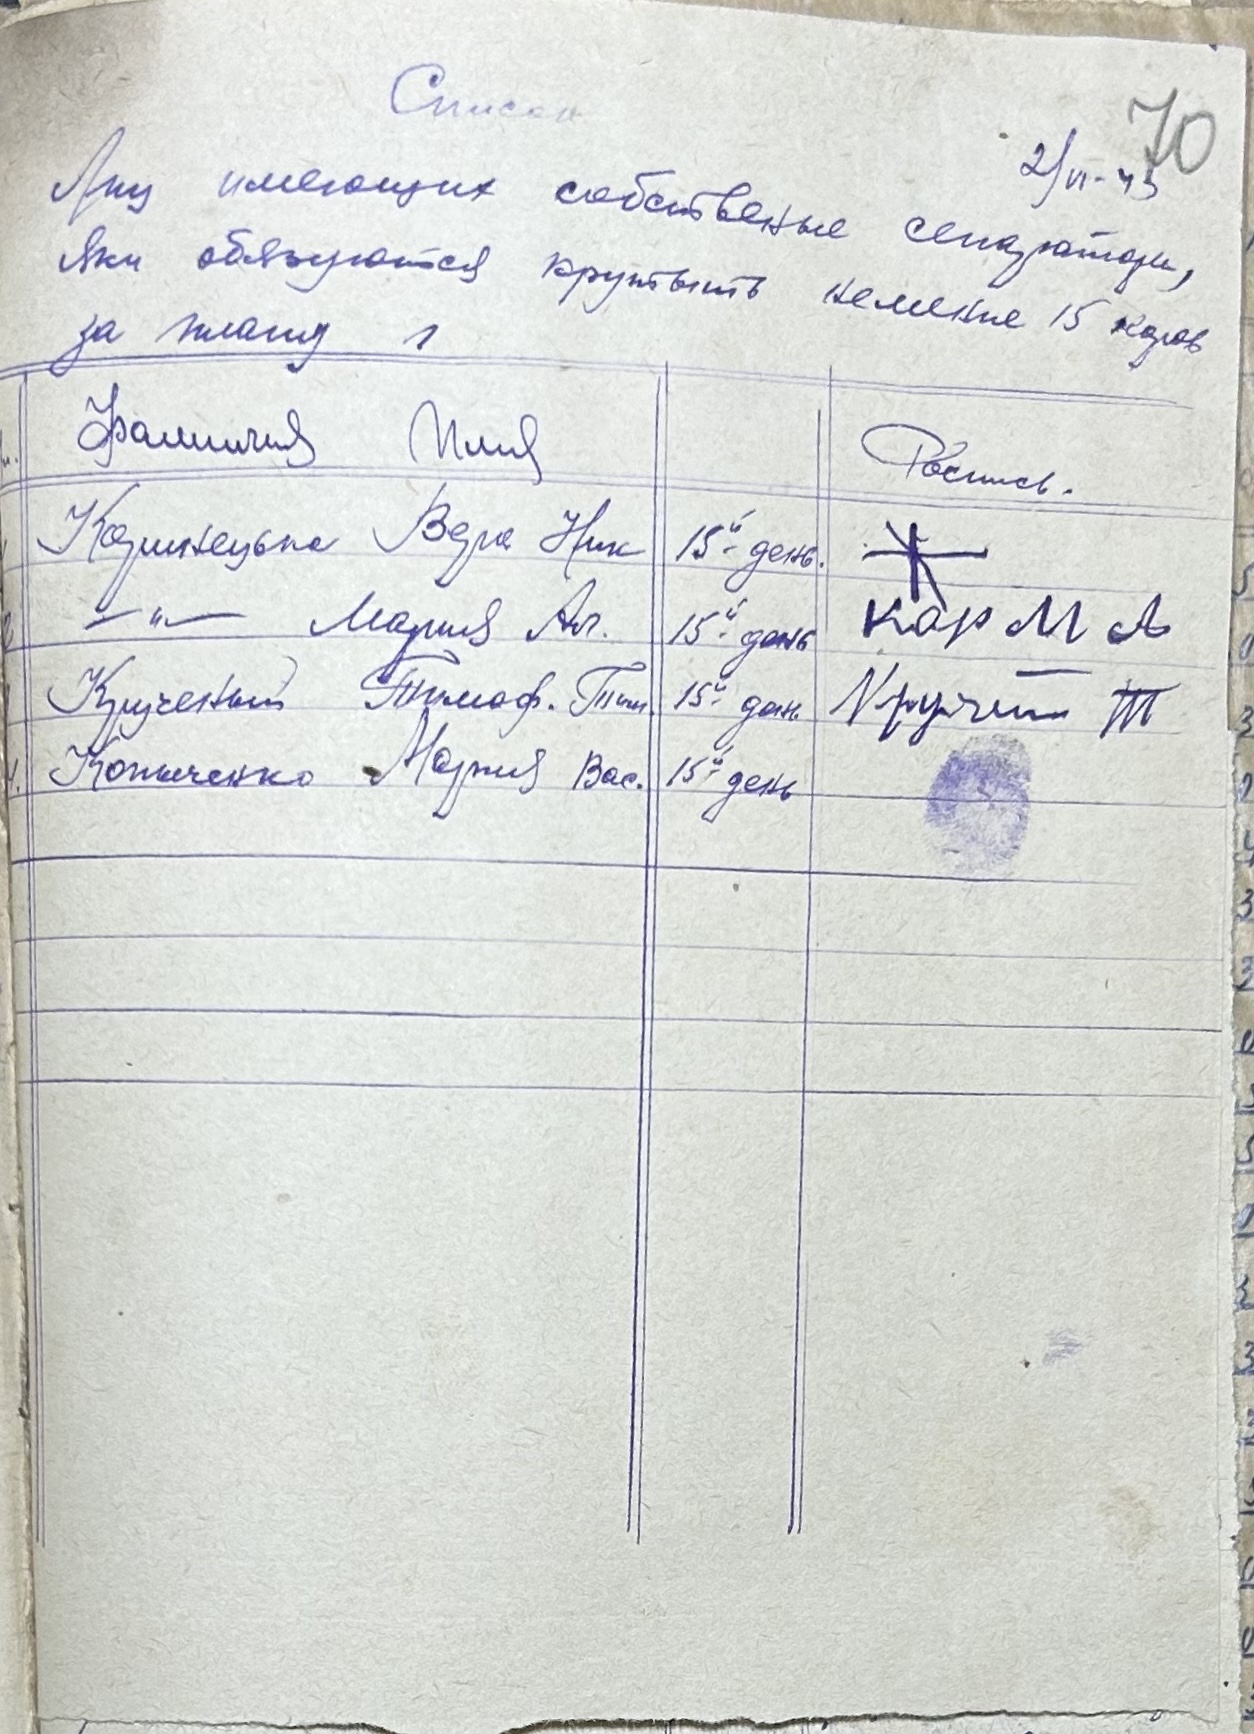 Список
70
2/VI-43
Лиц имеющих собственые сепараторы,
яки обязуются крутыть не менше 15 коров
за плату
Фамилия Имя Роспись.
Вера Ник 15й день.
—"— Мария Ал. 15й день кар М А
Крученый Тимоф. Тим. 15й день Кручений Т
4. Копыченко Мария Вас. 15й день